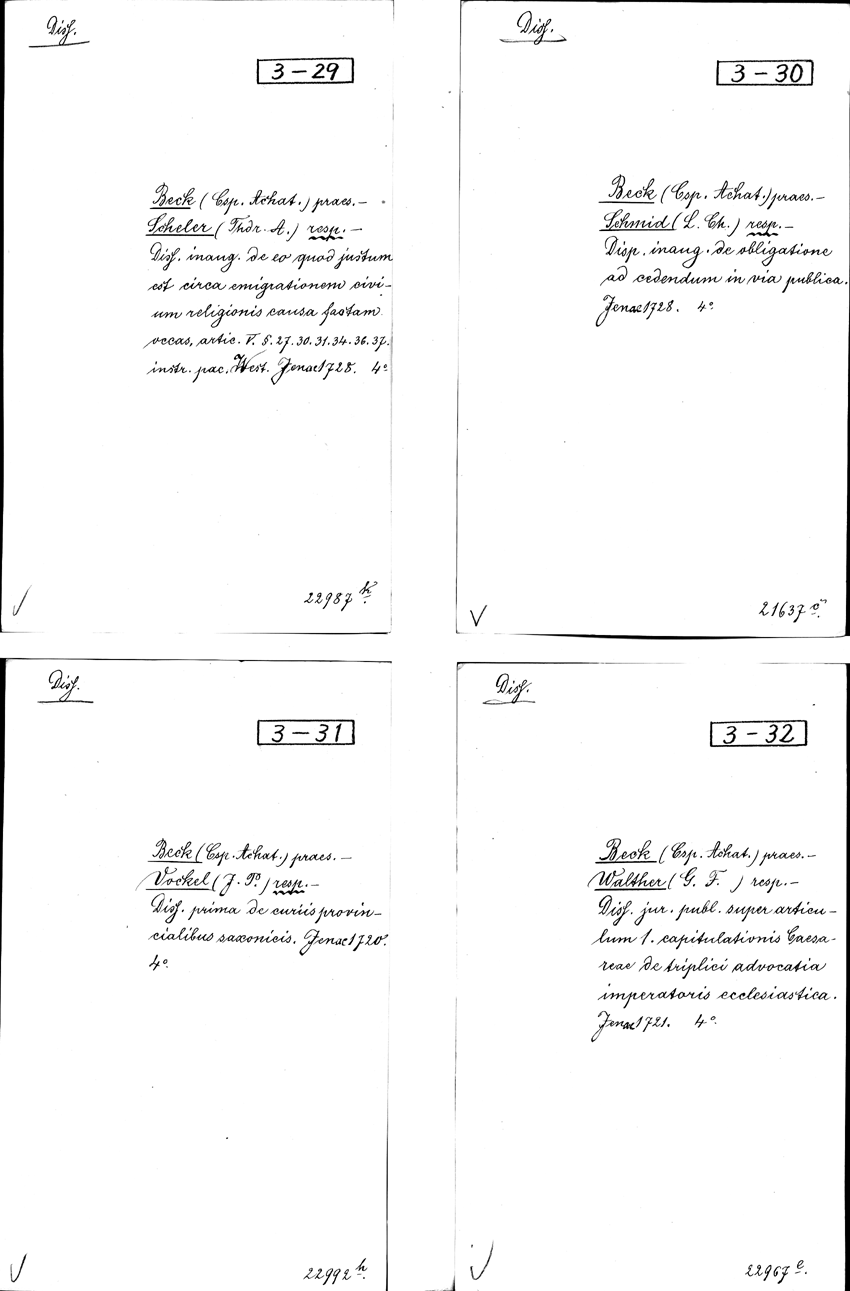 Diss.
3-29
Beck (Csp. Achat.) praes. -
Scheler (Thdr. A.) resp. -
Diss. inaug. de eo quod justum
est circa emigrationem civi-
um religionis causa factam
occas. artic. V. §. 27. 30. 31. 34. 36. 37.
instr. pac. West. Jenae 1728. 4°
22987 k.
Diss.
3-30
Beck (Csp. Achat.) praes. -
Schmid (L. Ch.) resp. -
Disp. inaug. de obligatione
ad cedendum in via publica.
Jenae 1728. 4°.
21637
Diss.
3-31
Beck (Csp. Achat.) praes. -
Vockel (J. P.) resp. -
Diss. prima de curiis provin-
cialibus saxonicis. Jenae 1720.
4°.
22992 h.
Diss.
3-32
Beck (Csp. Achat.) praes. -
Walther (G. F. ) resp. -
Diss. jur. publ. super articu-
lum 1. capitulationis Caesa-
reae de triplici advocatia
imperatoris ecclesiastica.
Jenae 1721. 4°.
22967 e.